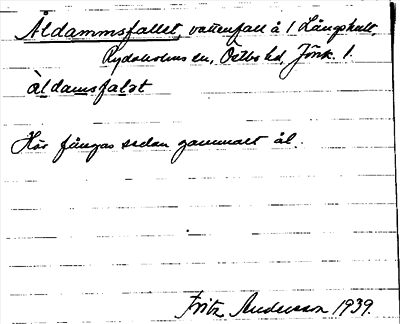 Åldammsfallet, vattenfall å 1 Långhult,
Rydaholms sn, Östbo hd, Jönk. l.
åldamsfalət
Här fångas sedan gammalt ål.
Fritz Andersson 1939.